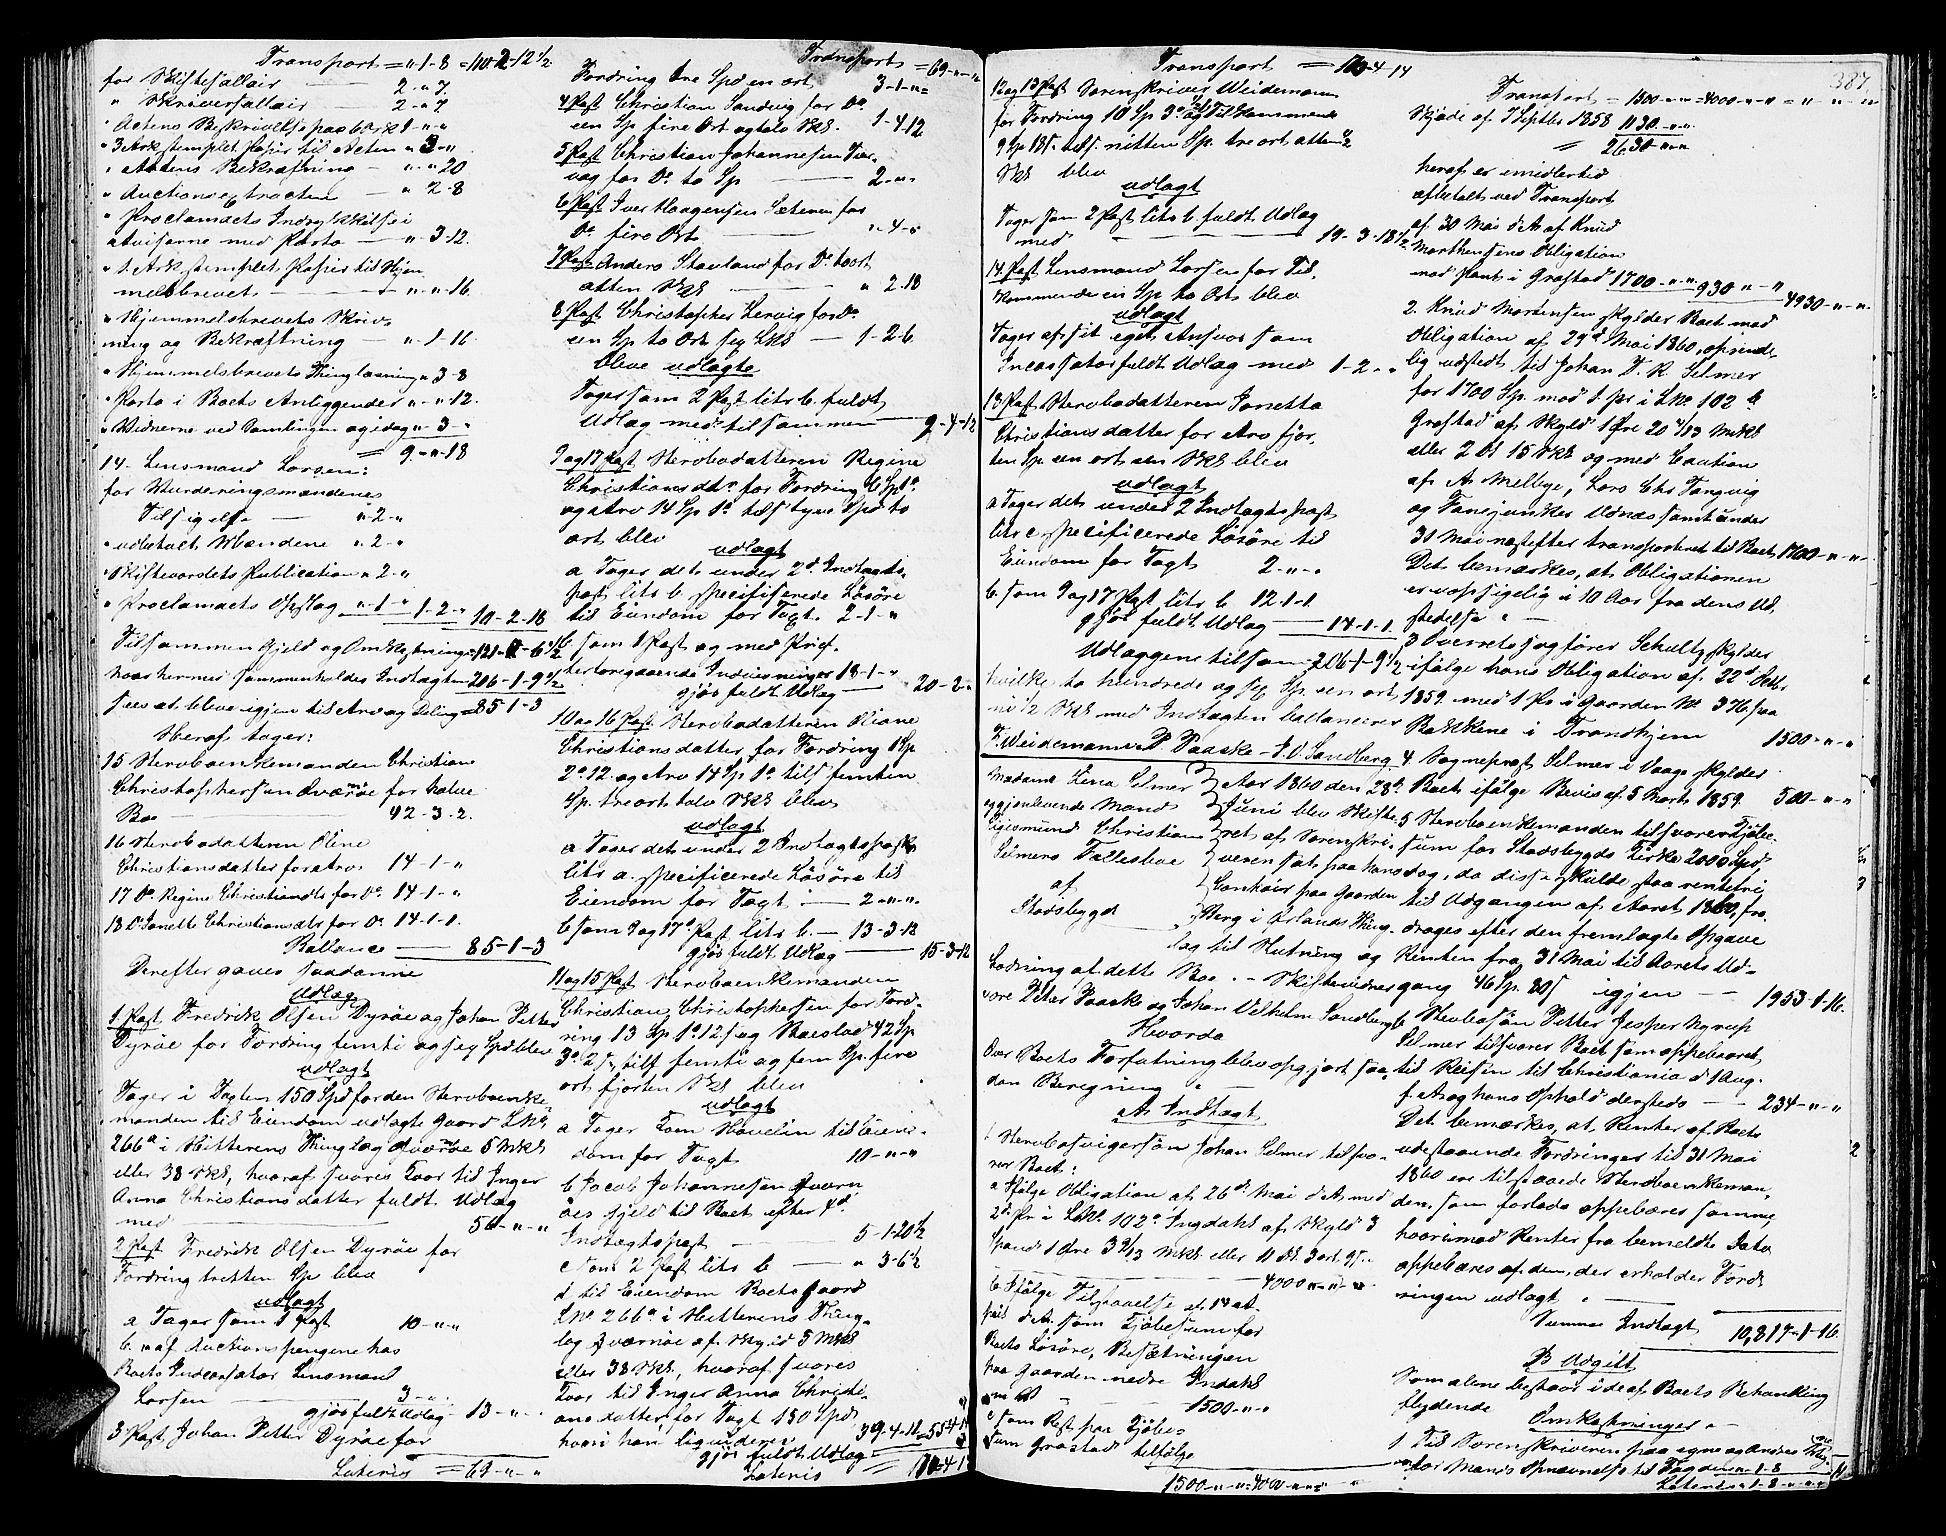 Transport = " 1-8 = 110-2-12 1/2
for Skiftesallair — 2-"7.
" Skriversallair 2-"7
" Actens Beskrivelse paa 6 Ark 1-"-"
" 3 Ark stemplet Papir til Acten " 3-"
" Actens Bekræftning — "-"20
" Auctionsextracten — " 2-8
" Proclamaets Indrykkelse i
Aviserne med Porto — "-3-12.
" 1 Ark stemplet Papir til Hjem
melsbrevet — "-"-16.
" Hjemmelsbrevets Skriv-
ning og Bekræftning — "-1-16.
" Hjemmelsbrevets Thinglæsning " 3-8
" Porto i Boets Anliggender "-"-12.
" Vidnerne ved Samlingen og idag " 3-"
= 9-"-18
14. Lensmand Larsen:
for Vurderingsmændenes
Tilsigelse — "-2-"
" udbetalt Mændene "-2-"
" Skiftevordets Publication " 2-"
" Proclamaets Opslag "-1-" 1-2-" 10-2-18
Tilsammen Gjeld og Omkostninger 121-"-6 1/2
naar hermed sammenholdes Indtægten 206-1-9 1/2
sees at blive igjen til Arv og Deling 85-1-3
Heraf tager:
15 Sterboenkemanden Christian
Christophersen Qværøe for halve
Bo — 42-3-2.
16 Sterbodatteren Oline
Christiansdatter for Arv 14-1-"
17 Do Regine Christiansdtr for Do 14-1-"
18 Do Janette Christiansdtr for Do 14-1-1.
Ballance — 85-1-3
Derefter gaves saadanne
Udlæg
1 Post Fredrik Olsen Dyrøe og Johan Petter
Dyrøe for Fordring femti og sex Spd blev
udlagt
Tager i Tagten 150 Spd for den Sterboenke
manden til Eiendom udlagte Gaard LNo
266a i Hitterens Thinglag Qværøe 5 Mkl
eller 38 Skl, hvoraf svares Kaar til Inger
Anna Christiansdatter fuldt Udlæg
med — 56-"-"
2 Post Fredrik Olsen Dyrøe for
Fordring tretten Sp blev
udlagt
a Tager som 1 Post 10-"-"
b " af Auctionspengene hos
Boets Incassator Lensmand
Larsen — 3-"-
gjør fuldt Udlæg - 13-"-"
3 Post, Johan Petter Dyrøe for
Lateris = 69-"-"

Transport = 69-"-"
Fordring tre Spd en ort 3-1-"=
4 Post Christian Sandvig for Do
een Sp fire Ort og tolv Skl. 1-4-12
5 Post Christian Johannesen Tær-
vag for Do to Sp — 2-"-
6 Post Iver Haagensen Sæteren for
Do fire Ort — "-4-"
7 Post Anders Stavland for Do to ort
atten Skl — " 2-18
8 Post Christopher Hervig for Do
een Sp to Ort sex Skl — 1-2-6
bleve udlagte
Tager som 2 Post litr b. fuldt
Udlæg med tilsammen — 9-4-12
9 og 17 Post Sterbodatteren Regine
Christiansdtr for Fordring 6 Sp 1o
og Arv 14 Sp 1o tils tyve Spd to
ort blev
udlagt
a Tager det under 2d Indtægts
post litr b specificerede Løsøre
til Eiendom for Taxt. 2-1-"
b som 1 Post og med Prior.
her foregaaende Indvisninger 18-1-"
gjør fuldt Udlæg — 20-2-"
10 og 16 Post Sterbodatteren Oliane
Christiansdatter for Fordring 1 Sp
2o 12. og Arv 14 Sp 1o tils femten
Sp. tre ort tolv Skl blev
udlagt
a Tager det under 2 Indtægtspost
litr a. specificerede Løsøre til
Eiendom for Taxt — 2-"-"
b som 9 og 17d Post litr b. — 13-3-12
gjør fuldt Udlæg — 15-3-12
11 og 15 Post Sterboenkemanden
Christian Christophersen for Ford-
ring 13 Sp 1o 12 s og Boeslod 42 Sp
3o 2 s, tils femti og fem Sp. fire
ort fjorten Skl blev
udlagt
a Tager Koen Havelin til Eien-
dom for Taxt 10-"-"
b Jacob Johannesen Qværn
øes gjeld til Boet efter 4d
Indtægtspost — 5-1-20 1/2
c som 2 Post litr b — " 3-6 1/2
d til Eiendom Boets Gaard
LNo 266a i Hitterens Thing-
lag Qværnøe af Skyld 5 Mkl
eller 38 Skl, hvoraf svares
Kaar til Inger Anna Christi-
ansdatter, for Taxt 150 Spd
hvori han liqviderer 39-4-11 = 55-4-14
gjør fuldt Udlæg
Lateris = 170-4-14

Transport = 170-4-14
12 og 13 Post Sorenskriver Weidemann
for Fordring 10 Sp 3o og Tilkommende
9 Sp 18 s. tils. nitten Sp. tre ort atten 1/2
Skl blev
udlagt
Tager som 2 Post litr b. fuldt Udlæg
med — 19-3-18 1/2
14 Post Lensmand Larsen for Til-
kommende en Sp to Ort blev
udlagt
Tager af sit eget Ansvar som
Incassator fuldt Udlæg med 1-2-"
18 Post. Sterbodatteren Janetta
Christiansdatter for Arv fjor-
ten Sp. een ort een Skl blev
udlagt
a Tager det under 2 Indtægtspost
litr c specificerede Løsøre til
Eiendom for Taxt 2-"-"
b. som 9 og 17 Post litr b. 12-1-1.
gjør fuldt Udlæg — 14-1-1
Udlæggene tilsam- 206-1-9 1/2
hvilke to hundrede og sex Sp. een ort
ni 1/2 Skl med Indtægten ballancerer
F. Weidemann P. Paaske - J. V. Sandberg
Madame Lena Selmer
og gjenlevende Mand
Sigismund Christian
Selmers Fælleboe
af
Stadsbygd
Aar 1860 den 28de
Juni blev Skifte-
ret af Sorenskri-
veren sat paa hans
Contoir paa Gaarden
Berg i Ørlands Thing-
lag til Slutning og
Lodning af dette Bo. — Skiftevidner
vare Peter Paaske og Johan Vilhelm Sandberg
Hvorda
Over Boets Forfatning blev opgjort saa-
dan Beregning. —
A. Indtægt
1 Sterbosvigersøn Johan Selmer tilsva-
rer Boet:
a Ifølge Obligation af 26de Mai d.A. med
2d Pr. i LNo. 102a Ingdahl af Skyld 3
Spand 1 Øre 3 9/13 Mkl eller 11 Dl. 3 ort 9 s.
— 4000-"-"
b Ifølge Tilstaaelse af 14 Ap-
ril d.A. som Kjøbesum for
Boets Løsøre, Besætningen
paa Gaarden nedre Indahl
m. v. — 1500-"-"
c som Rest paa Kjøbe-
sum Grøstad tilfølge
1500-"-"=4000-"-"=

387
Transport = 1500-"-"=4000-"-"="-"-"
Skjøde af 7 Septbr 1858 1130-"-"
= 2630-"-"
heraf er imidlertid
afbetalt ved Transport
af 30 Mai d.A. af Knud
Morthensens Obligation
med Pant i Grøstad 1700-"-" 930-"-" 4930-"-"
2. Knud Mortensen skylder Boet med
Obligation af 29de Mai 1860, oprinde-
lig udstedt til Johan D. R. Selmer
for 1700 Sp. mod 1 pr i LNo 102b
Grøstad af Skyld 1 Øre 20 4/13 Mkl
eller 2 Dl 15 Skl og med Caution
af A. Mellbye, Lars Chr Tangvig
og Fanejunker Udnæs samt under
31 Mai næstefter transporteret til Boet 1700-"-"
Det bemærkes, at Obligationen
er uopsigelig i 10 Aar fra dens Ud-
stedelse. —
3 Overretssagfører Schultz skylder
ifølge hans Obligation af 22de Octbr
1859. med 1 Pr i Gaarden No 376 paa
Bakkene i Trondhjem 1500-"-"
4 Sognepræst Selmer i Vaage skylder
Boet ifølge Bevis af 5 Marts 1859. 500-"-"
5 Sterboenkemanden tilsvarer Kjøbe-
sum for Stadsbygds Kirke 2000 Spd
da disse skulde staa rentefri
til Udgangen af Aaret 1860, fra-
drages efter den fremlagte Opgave
Renten fra 31 Mai til Aarets Ud-
gang 46 Sp. 80 s igjen — 1953-1-16.
6 Sterbosøn Petter Jesper Nyrup
Selmer tilsvarer Boet som oppebaaret
til Reisen til Christiania d 1 Aug.
f. A og hans Ophold dersteds — 234-"-"
Det bemærkes, at Renter af Boets
udestaaende Fordringer til 31 Mai
1860 ere tilstaaede Sterboenkeman-
den, som forlods oppebærer samme,
hvorimod Renter fra bemeldte Dato
oppebæres af dem, der erholder Ford
ringen udlagt. —
Summa Indtægt 10,817-1-16.
B Udgift
Som alene bestaar i de af Boets Behandling
flydende Omkostninger. —
1 Til Sorenskriveren paa egne og Andres Vegne
for Mænds Opnævnelse til Tax den " 1-8
Lateris " 1-8-"-"